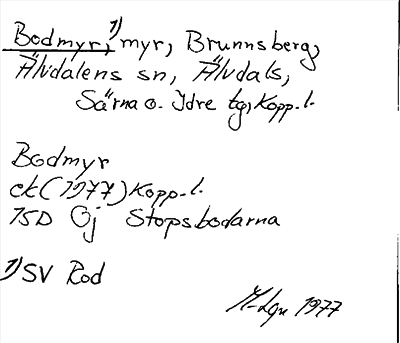 Bodmyr,¹⁾ myr, Brunnsberg,
Älvdalens sn, Älvdals,
Särna o. Idre tg, Kopp. l.
Bodmyr
ek (1977) Kopp. l.
15D Öj Stopsbodarna
1) SV Rod
1977